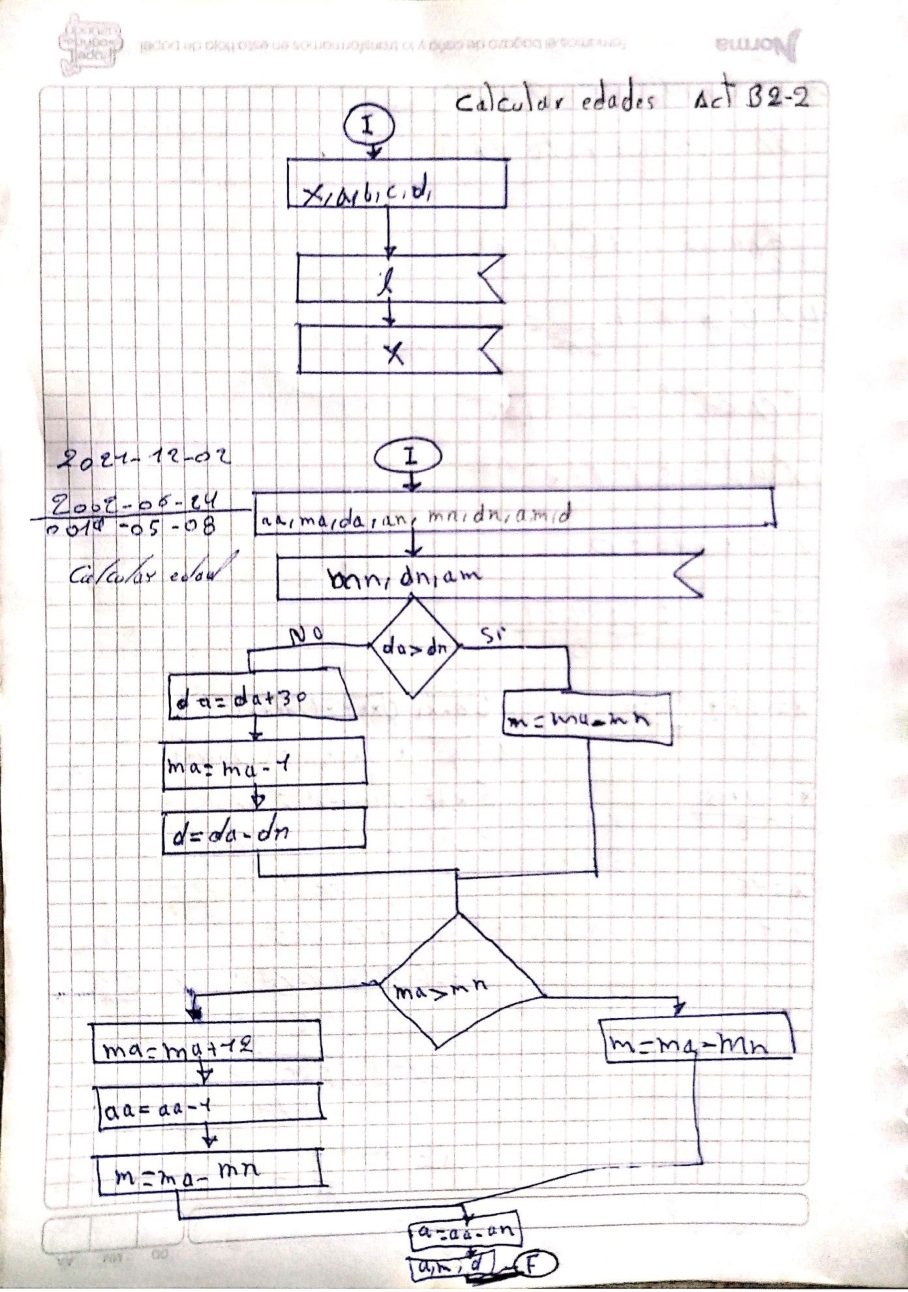 Norma
Tomamos el bagazo de caña y lo transformamos en esta hoja de papel
Calcular edades Act B2-2
I
x, a, b, c, d,
l
x
2021-12-02
2002-06-24
0019-05-08
Calcular edad
I
aa, ma, da, an, mn, dn, a, m, d
dn, am
da>dn
No
Si
da=da+30
ma=ma-1
d=da-dn
m=ma-mn
ma>mn
ma=ma+12
aa=aa-1
m=ma-mn
m=ma-mn
a=aa-an
a, m, d
F
DD MM AA